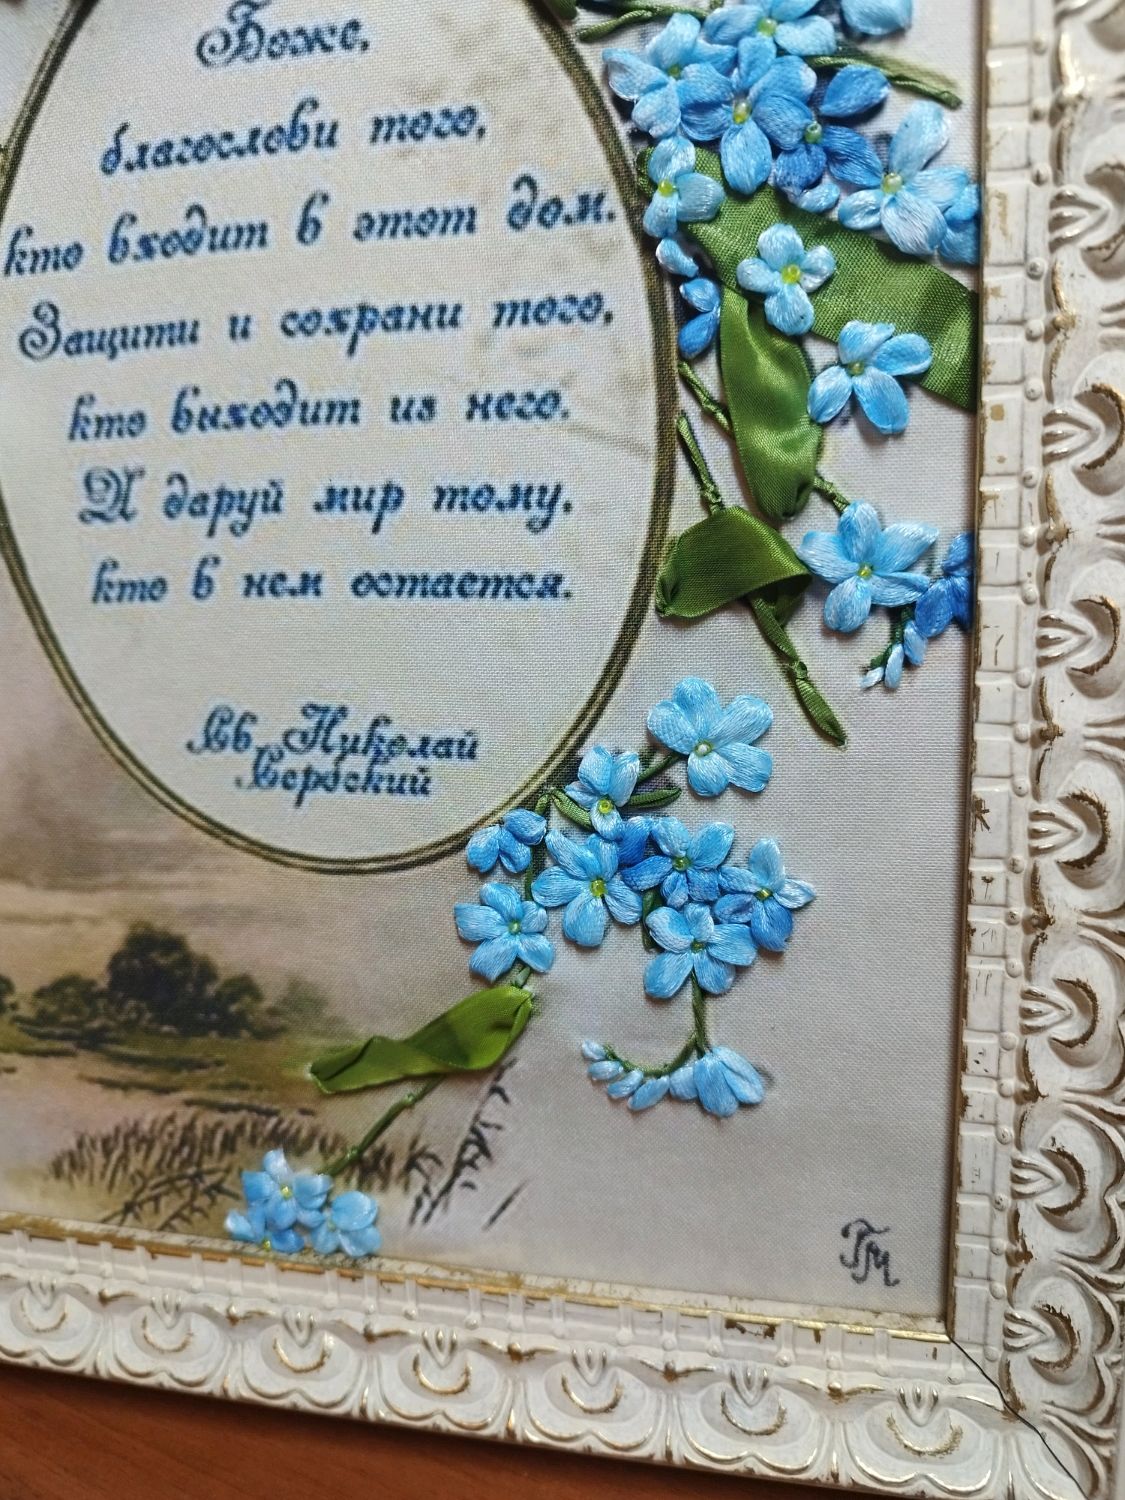 Боже,
благослови того,
кто входит в этот дом.
Защити и сохрани того,
кто выходит из него.
И даруй мир тому,
кто в нем остается.
Св. Николай
Сербский
ГМ